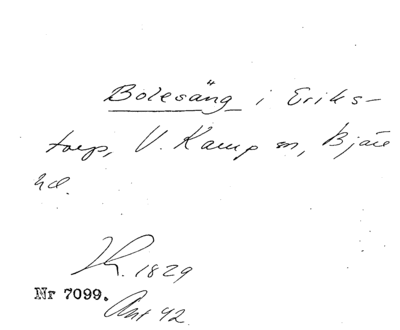 Bolesäng i Eriks-
torp, V. Karup sn, Bjäre
hd.
LK. 1829
Nr 7099.
Ant 42.